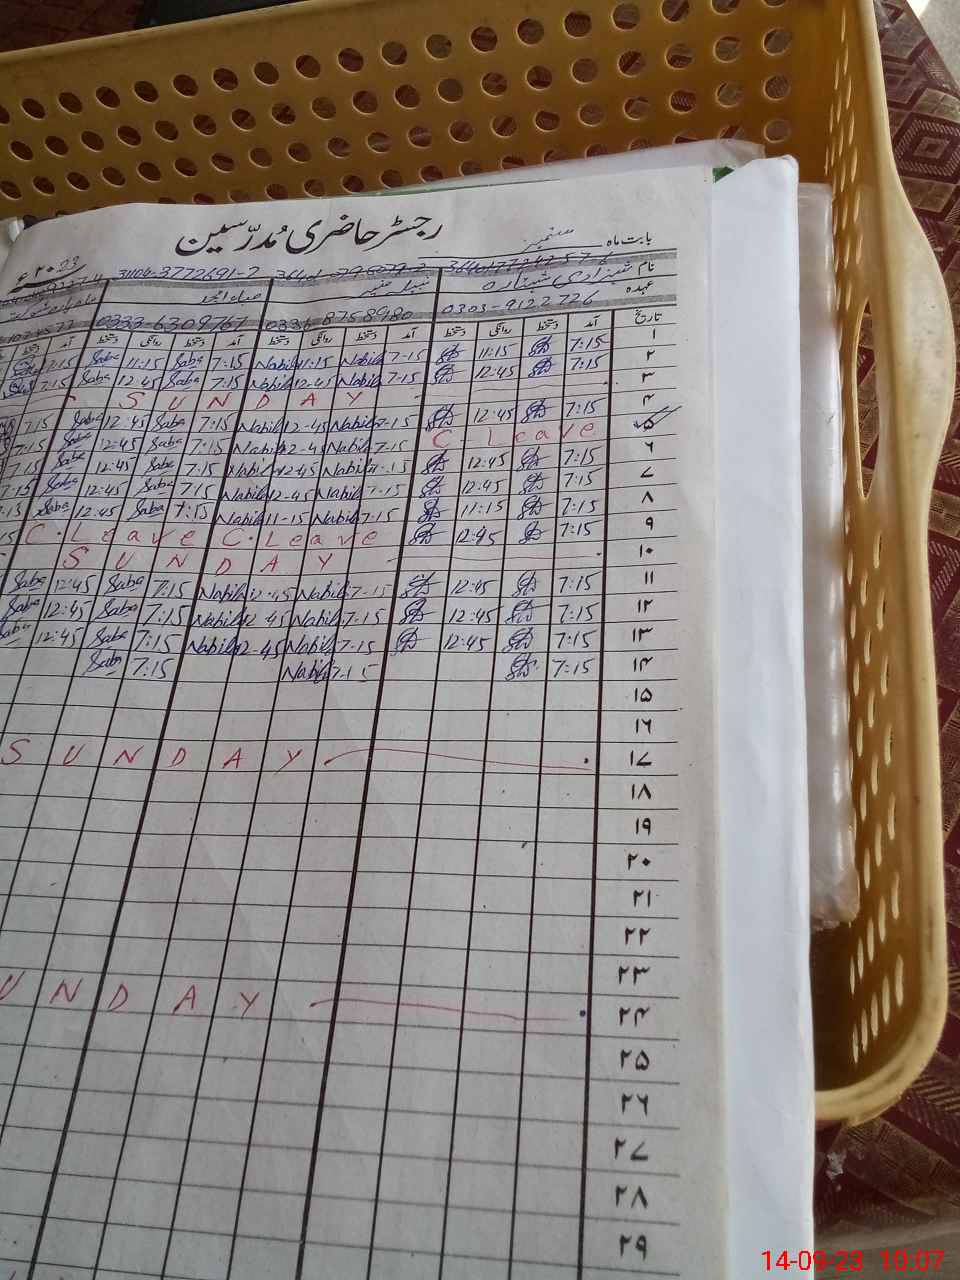 رجسٹر حاضری مُدرّسین
بابت ماہ ستمبر ۲۰23ء
نام شہزادی ستارہ
عہدہ
31104-3772691-2
0303-9122726 0333-6309767
تاریخ آمد دستخط روانگی دستخط آمد دستخط روانگی دستخط آمد دستخط روانگی دستخط
۱ 7:15 11:15 7-15 Nabila 11:15 Nabila 7:15 Saba 11:15 Saba 7:15
۲ 7:15 12:45 7-15 Nabila 12-45 Nabila 7:15 Saba 12:45 Saba 7:15
۳ SUNDAY
۴ 7:15 12:45 7-15 Nabila 12-45 Nabila 7:15 Saba 12:45 Saba 7:15
۵ C. Leave 7-15 Nabila 12-45 Nabila 7:15 Saba 12:45 Saba 7:15
۶ 7:15 12:45 7-15 Nabila 12-45 Nabila 7:15 Saba 12:45 Saba 7:15
۷ 7:15 12:45 7-15 Nabila 12-45 Nabila 7:15 Saba 12:45 Saba 7:15
۸ 7:15 11:15 7-15 Nabila 11-15 Nabila 7:15 Saba 12:45 Saba 7:15
۹ 7:15 12:45 C. Leave C. Leave
۱۰ SUNDAY
۱۱ 7:15 12:45 7-15 Nabila 12-45 Nabila 7:15 Saba 12:45 Saba
۱۲ 7:15 12:45 7-15 Nabila 12-45 Nabila 7:15 Saba 12:45 Saba
۱۳ 7:15 12:45 7-15 Nabila 12-45 Nabila 7:15 Saba 12:45 Saba
۱۴ 7:15 7-15 Nabila 7:15 Saba
۱۵
۱۶
۱۷ SUNDAY
۱۸
۱۹
۲۰
۲۱
۲۲
۲۳
۲۴ UNDAY
۲۵
۲۶
۲۷
۲۸
۲۹
14-09-23 10:07